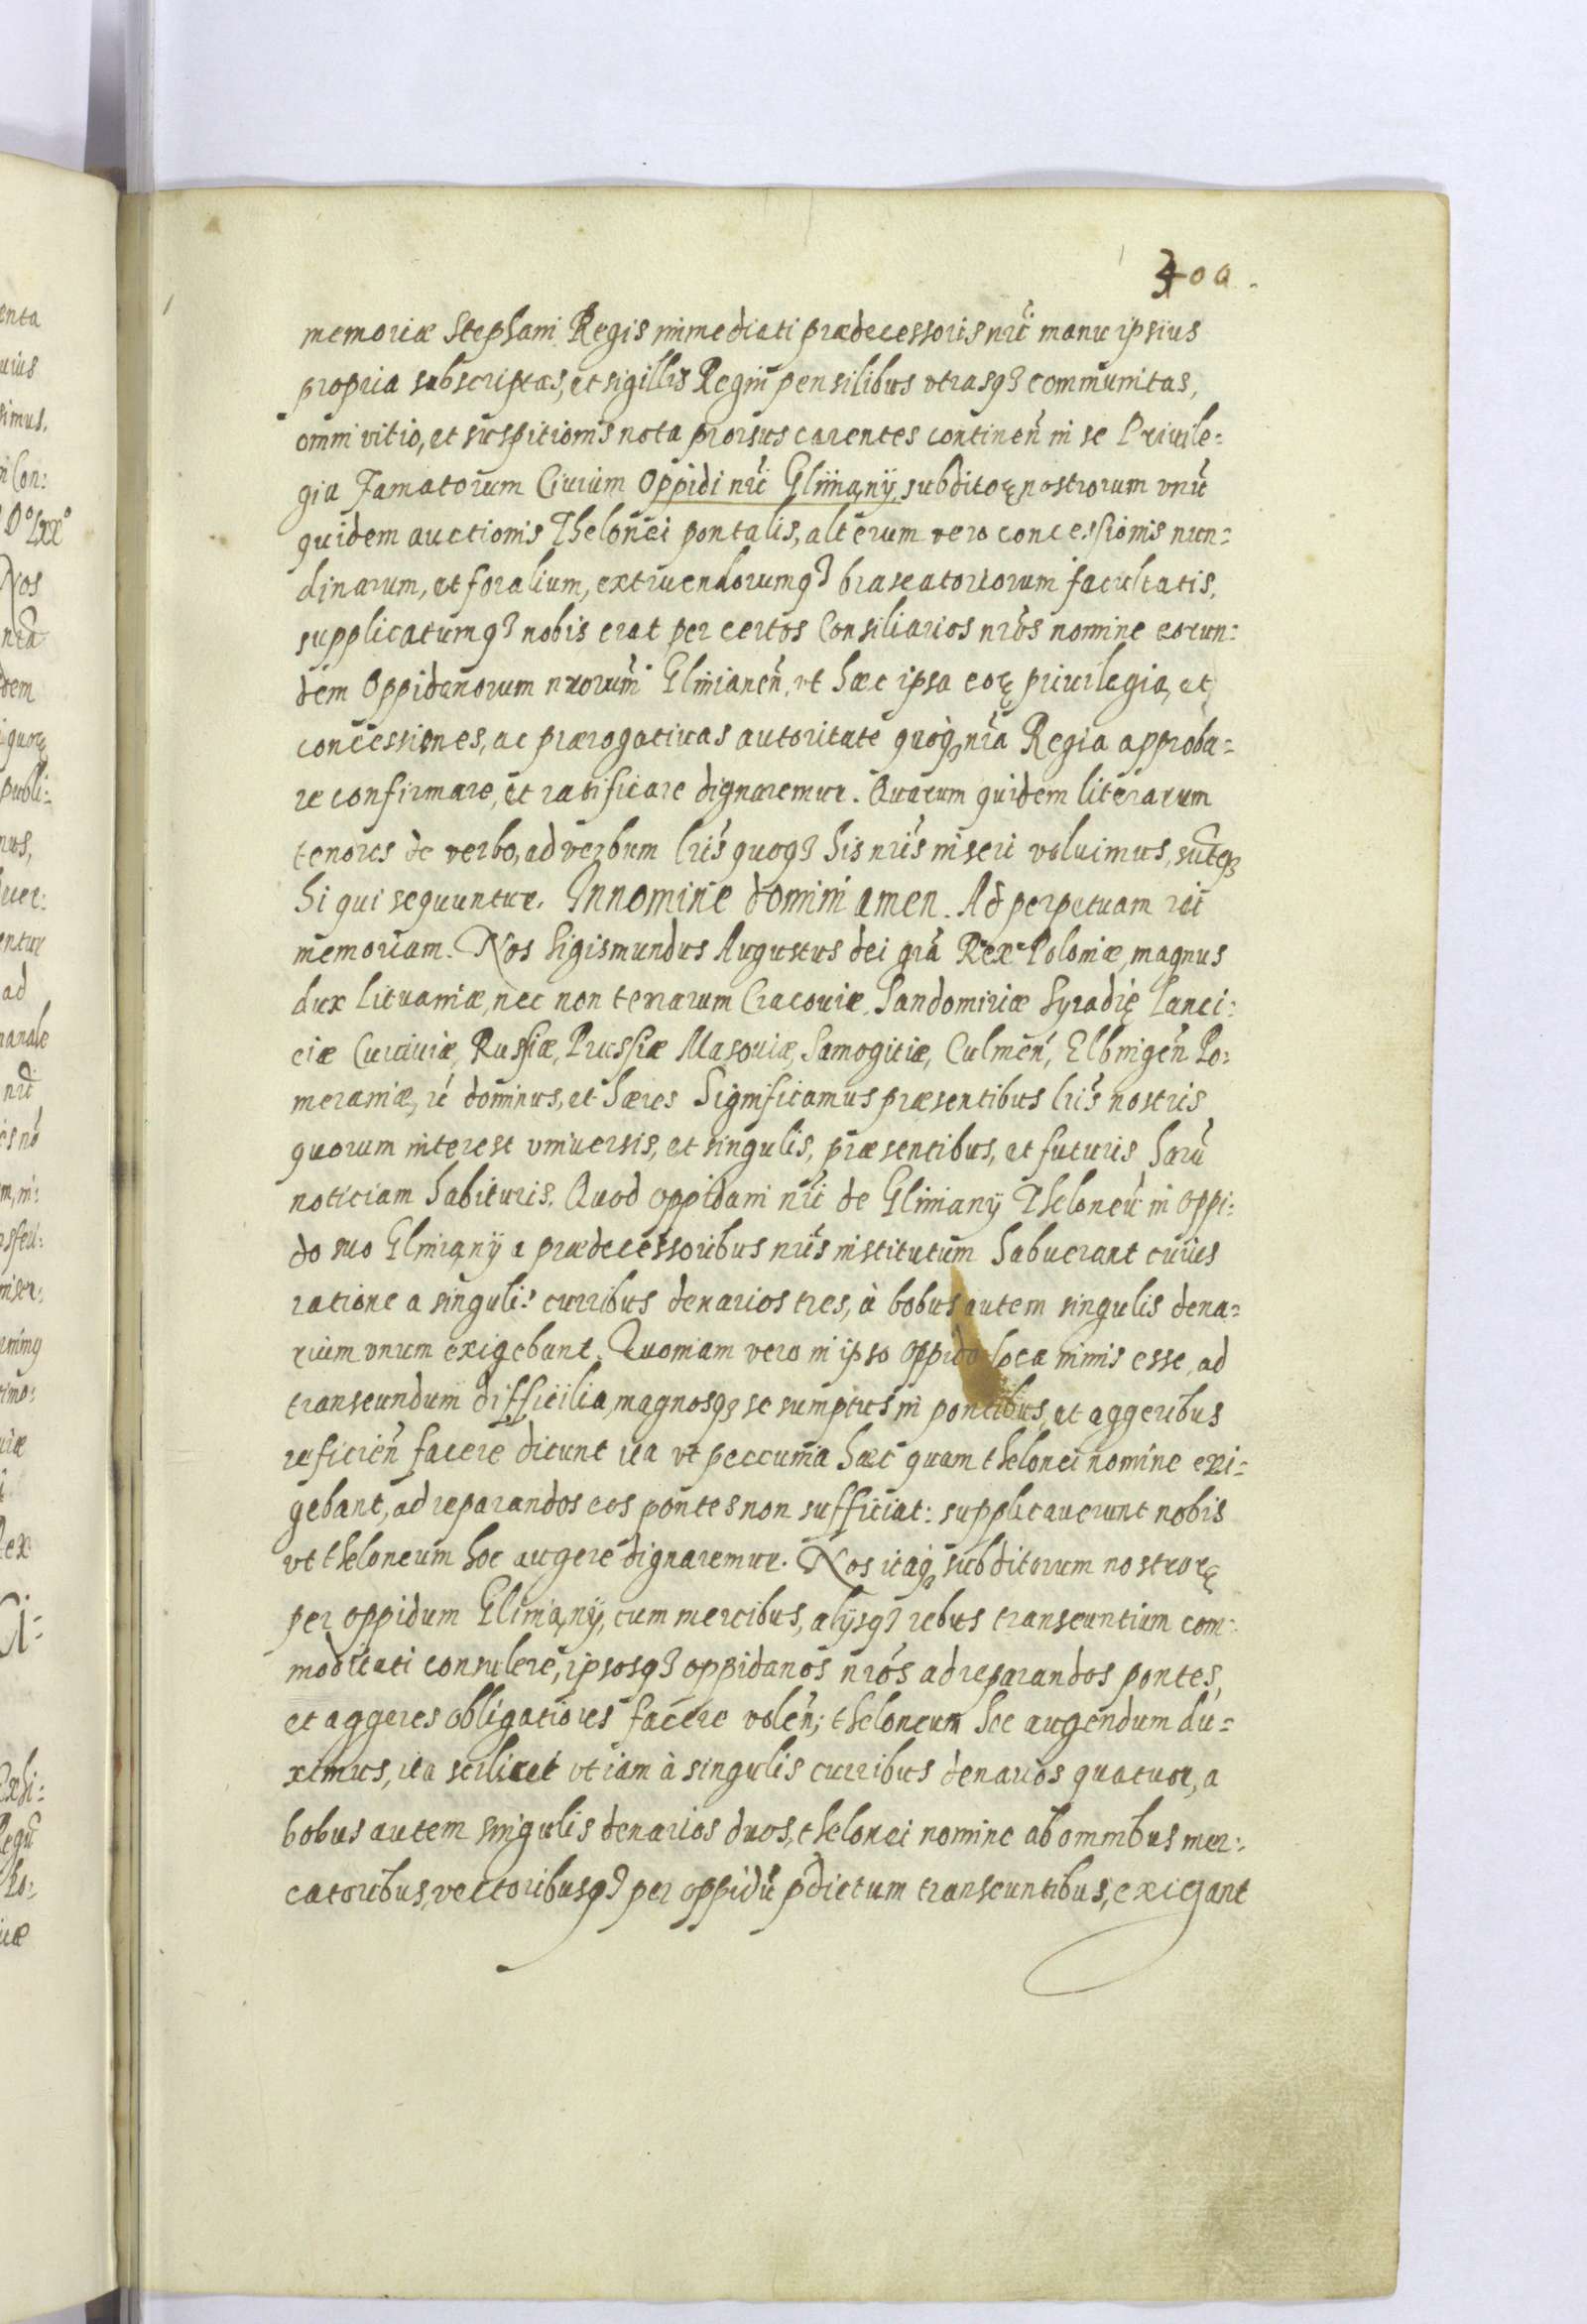 300.
memoriæ Stephani Regis immediati prædecessoris nrĩ manu ipsius
propria subscriptas, et sigillis Regni pensilibus vtrasq3 communitas,
omni vitio, et suspitionis nota prorsus carentes continen̄ in se Priuile:
gia Famatorum Ciuium Oppidi nrĩ Gliniany, subditoꝝ nostrorum vnū
quidem auctionis Thelonei pontalis, alterum vero concessionis nun:
dinarum, et foralium, extruendorumq3 braseatoriorum facultatis,
supplicatumq3 nobis erat per certos Consiliarios nros nomine eorun:
dem Oppidanorum nrorum Glinianen̄, vt hæc ipsa eoꝝ priuilegia, et
concessiones, ac prærogatiuas autoritate quoq3 nrā Regia approba:
re confirmare, et ratificare dignaremur. Quarum quidem literarum
tenores de verbo, ad verbum lris quoq3 his nris inseri voluimus, suntq3
hi qui sequuntur. In nomine domini amen. Ad perpetuam rei
memoriam. Nos Sigismundus Augustus dei grā Rex Poloniæ, magnus
dux Lituaniæ, nec non terrarum Cracouiæ, Sandomiriæ Syradię Lanci:
ciæ Cuiauiæ, Russiæ, Prussiæ Masouiæ, Samogitiæ, Culmen̄, Elbingen̄ Po:
meraniæ, ꝛć dominus, et hæres Significamus præsentibus lris nostris
quorum interest vniuersis, et singulis, præsentibus, et futuris harū
noticiam habituris. Quod oppidani nrĩ de Gliniany Theloneū in oppi:
do suo Gliniany a prædecessoribus nris institutum habuerant cuius
ratione a singulis curribus denarios tres, à bobus autem singulis dena:
rium vnum exigebant. Quoniam vero in ipso oppido loca nimis esse, ad
transeundum difficilia, magnosq3 se sumptus in pontibus, et aggeribus
reficien̄ facere dicunt ita vt peccunia hæc quam thelonei nomine exi:
gebant, ad reparandos eos pontes non sufficiat: supplicauerunt nobis
vt theloneum hoc augere dignaremur. Nos itaq3 subditorum nostroꝝ
per oppidum Gliniany, cum mercibus, alijsq3 rebus transeuntium com:
moditati consulere, ipsosq3 oppidanos nros ad reparandos pontes,
et aggeres obligatiores facere volen̄; theloneum hoc augendum du:
ximus, ita scilicet vt iam à singulis curribus denarios quatuor, a
bobus autem singulis denarios duos, thelonei nomine ab omnibus mer:
catoribus, vectoribusq3 per oppidū pdictum transeuntibus, exigant